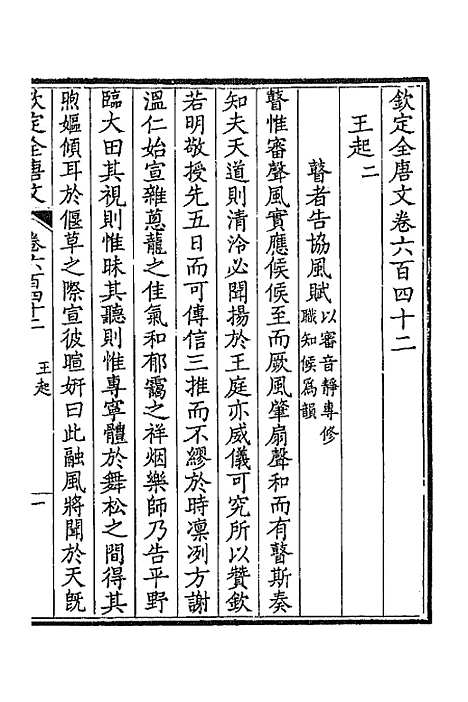 欽定全唐文卷六百四十二
王起二
瞽者告協風賦以審音靜專修
職知候爲韻
瞽惟審聲風實應候候至而厥風肇扇聲和而有瞽斯奏
知夫天道則清泠必聞揚於王庭亦威儀可究所以贊欽
若明敬授先五日而可傳信三推而不繆於時凜冽方謝
溫仁始宣雜蔥蘢之佳氣和郁靄之祥烟樂師乃告平野
臨大田其視則惟昧其聽則惟專寧體於舞松之間得其
煦嫗傾耳於偃草之際宣彼暄妍曰此融風將聞於天旣
欽定全唐文
卷六百四十二
王起
一